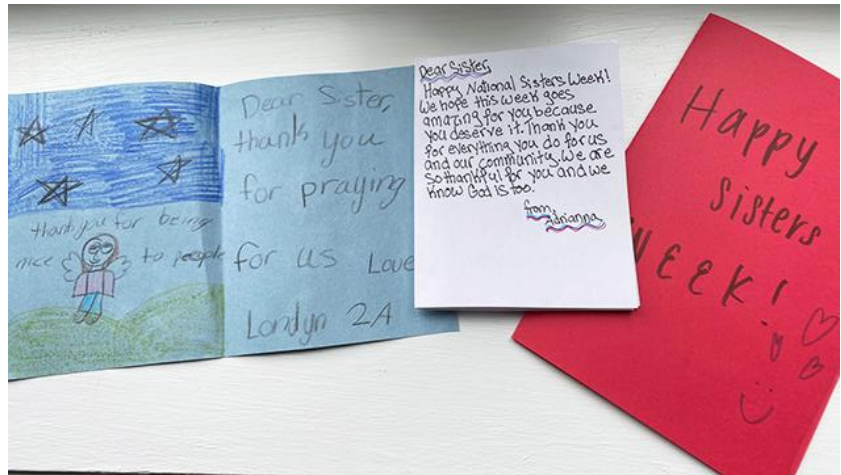 thank you for being
nice to people
Dear Sister,
thank you
for praying
for us Love
Londyn 2A
Dear Sister,
Happy National Sisters Week!
We hope this week goes
amazing for you because
you deserve it. Thank you
for everything you do for us
and our community. We are
so thankful for you and we
know God is too.
from,
Adrianna
Happy
Sisters
WEEK!